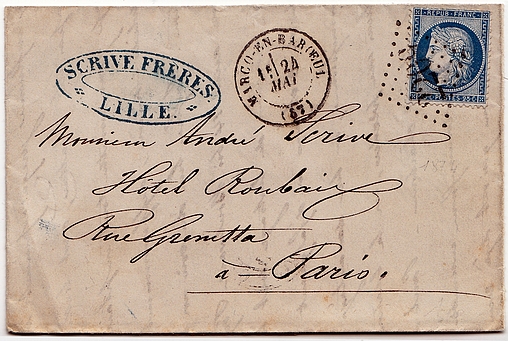 REPUB. FRANC.
POSTES 25 C
SCRIVE FRÈRES.
LILLE.
MARCQ-EN-BARŒUL
1E
24
MAI
(57)
Monsieur André Scrive
Hôtel Roubaix
Rue Grenetta
à Paris.